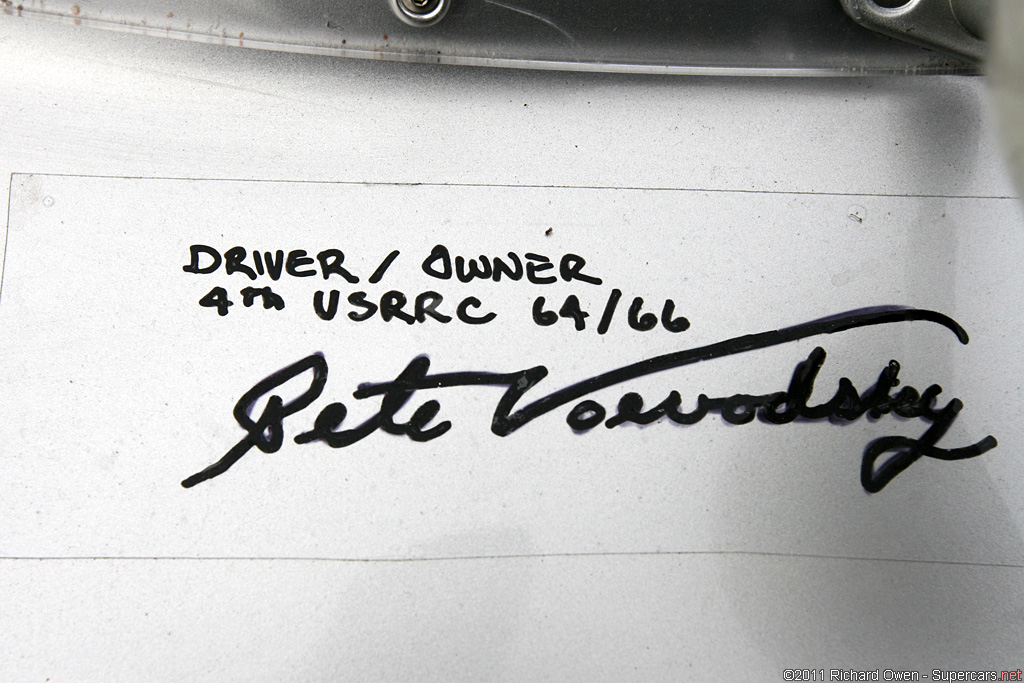 DRIVER / OWNER
4th USRRC 64/66
Pete Voevodsky
©2011 Richard Owen - Supercars.net